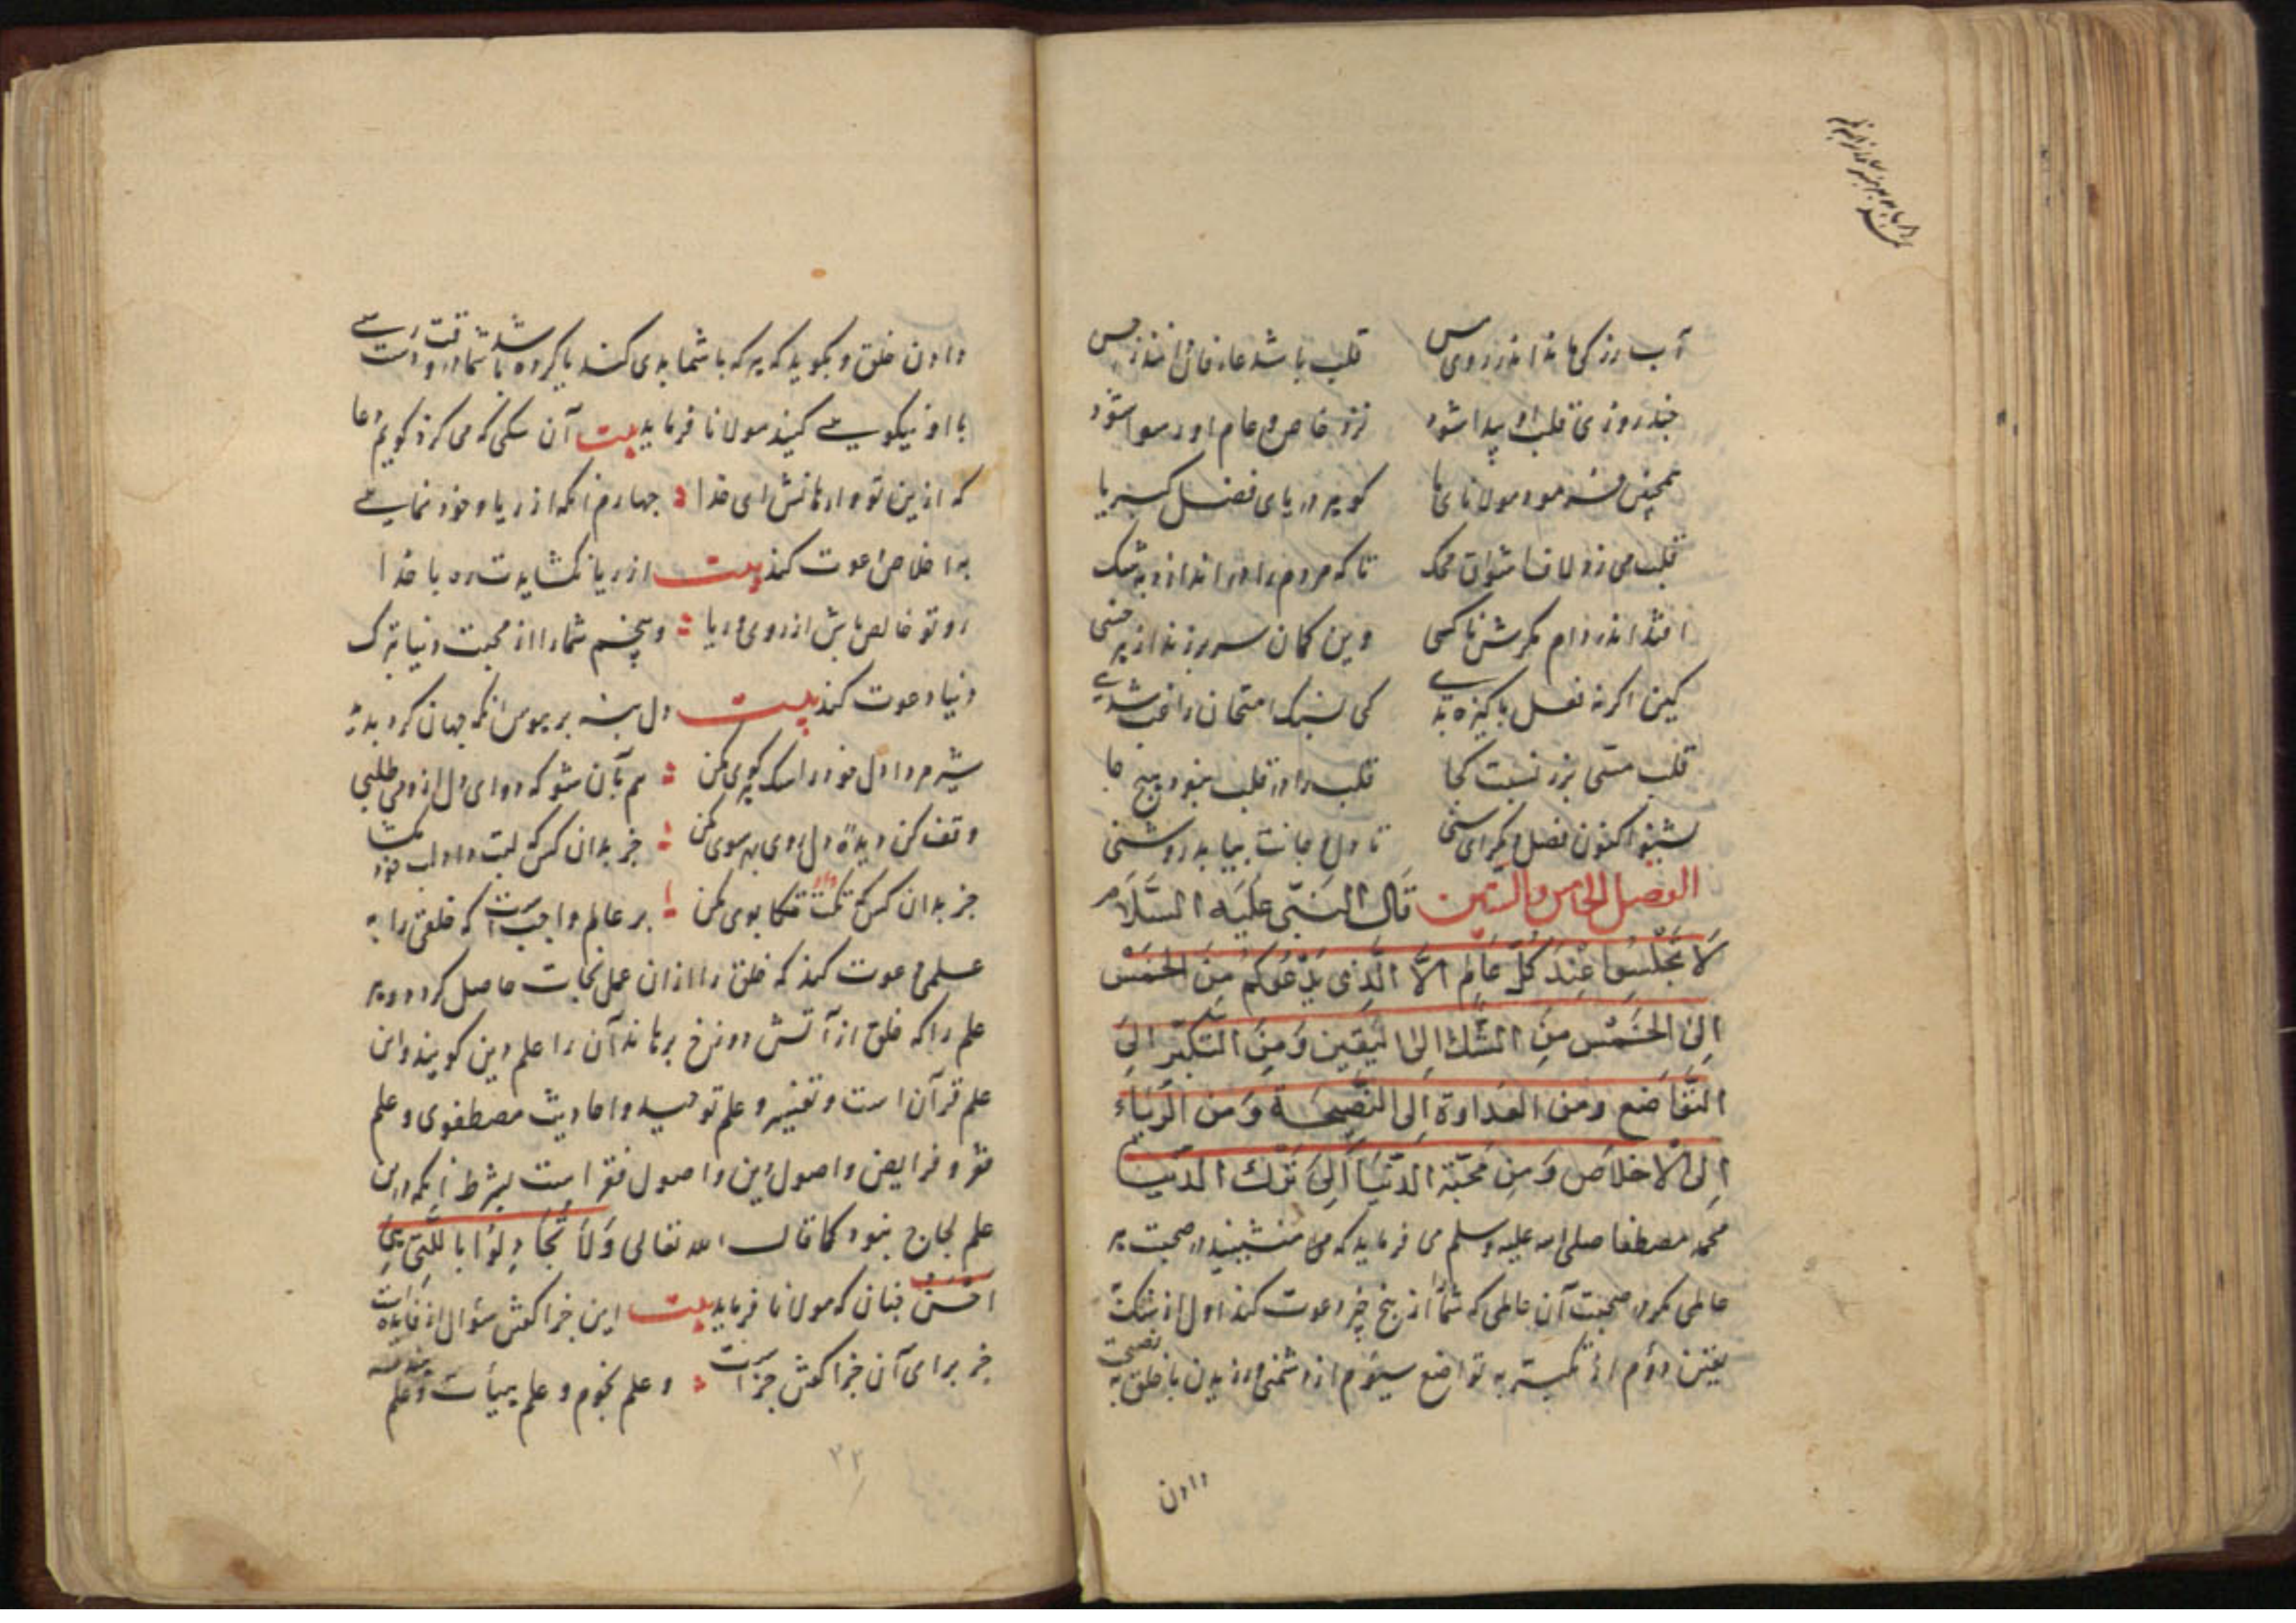 آب زر کی ماند اندر روی مس قلب باشد عارفان را
چند روزی قلب او پیدا شود نزد خاص و عام او رسوا شود
همچنین فرمود مولانای ما کو بد دریای فضل کبریا
قلب می زد لاف شواق محک تا که مردم را در اندازد به شک
افتد اندر دام مکرش ناکسی وین کمان سر برزند از هر خسی
کین اگر نه فعل پاکیزه بدی کی بسنگ امتحان راغب شدی
قلب مس بزر نسبت کجا قلب را در قلب نبود هیچ جا
بشنو اکنون فصل دیگر ای سنی تا دل و جانت بیابد روشنی
الفصل الخامس والستین قال النبی علیه السلام
لا تجلسوا عند کل عالم الا الذی یدعوکم من الخمس
الی الخمس من الشك الی الیقین ومن التکبر الی
التواضع ومن العداوة الی النصیحة ومن الریاء
الی الاخلاص ومن محبة الدنیا الی ترك الدنیا
محمد مصطفا صلی الله علیه وسلم می فرماید که منشینید در صحبت هر
عالمی مگر در صحبت آن عالمی که شما را از پنج چیز دعوت کند اول از شک به
یقین دوم از تکبر به تواضع سیوم از دشمنی ورزیدن با خلق به نصیحت
دادن
دادن خلق و بگوید که هر که با شما بدی کند یا کرده باشد شما در وقت
با او نیکویی کنید مولانا فرماید بیت آن سکی که می کزد کویم دعا
که ازین خو وارهانش ای خدا چهارم آنکه از ریا و خود نمایی
به اخلاص دعوت کند بیت از ریا نکشایدت ره با خدا
رو تو خالص باش از روی و ریا و پنجم شما را از محبت دنیا بترک
دنیا دعوت کند بیت دل بسته بر هوس آنکه جهان کرد
شیر مردا دل خود را سک هر کوی مکن هم بآن شو که دوای دل ازو می طلبی
وقف کن دیده و دل روی بهر سوی مکن جز بدان کس که لبت داد لب خود مکشا
جز بدان کس که تکت داد تکاپوی مکن بر عالم واجب است که خلق را به
علمی دعوت کند که خلق را از آن عمل نجات حاصل کردد و هر
علم را که خلق از آتش دوزخ برهاند آن را علم دین کویند و این
علم قرآن است و تفسیر و علم توحید و احادیث مصطفوی و علم
فقه و فرایض و اصول دین و اصول فقه است بشرط آنکه در این
علم لجاج نبود کما قال الله تعالی ولا تجادلوا بالتی هی
احسن چنان که مولانا فرماید بیت این چرا کفتن سؤال از فایده است
جز برای آن چرا کفتن چراست و علم نجوم و علم هیأت و علم
۲۲